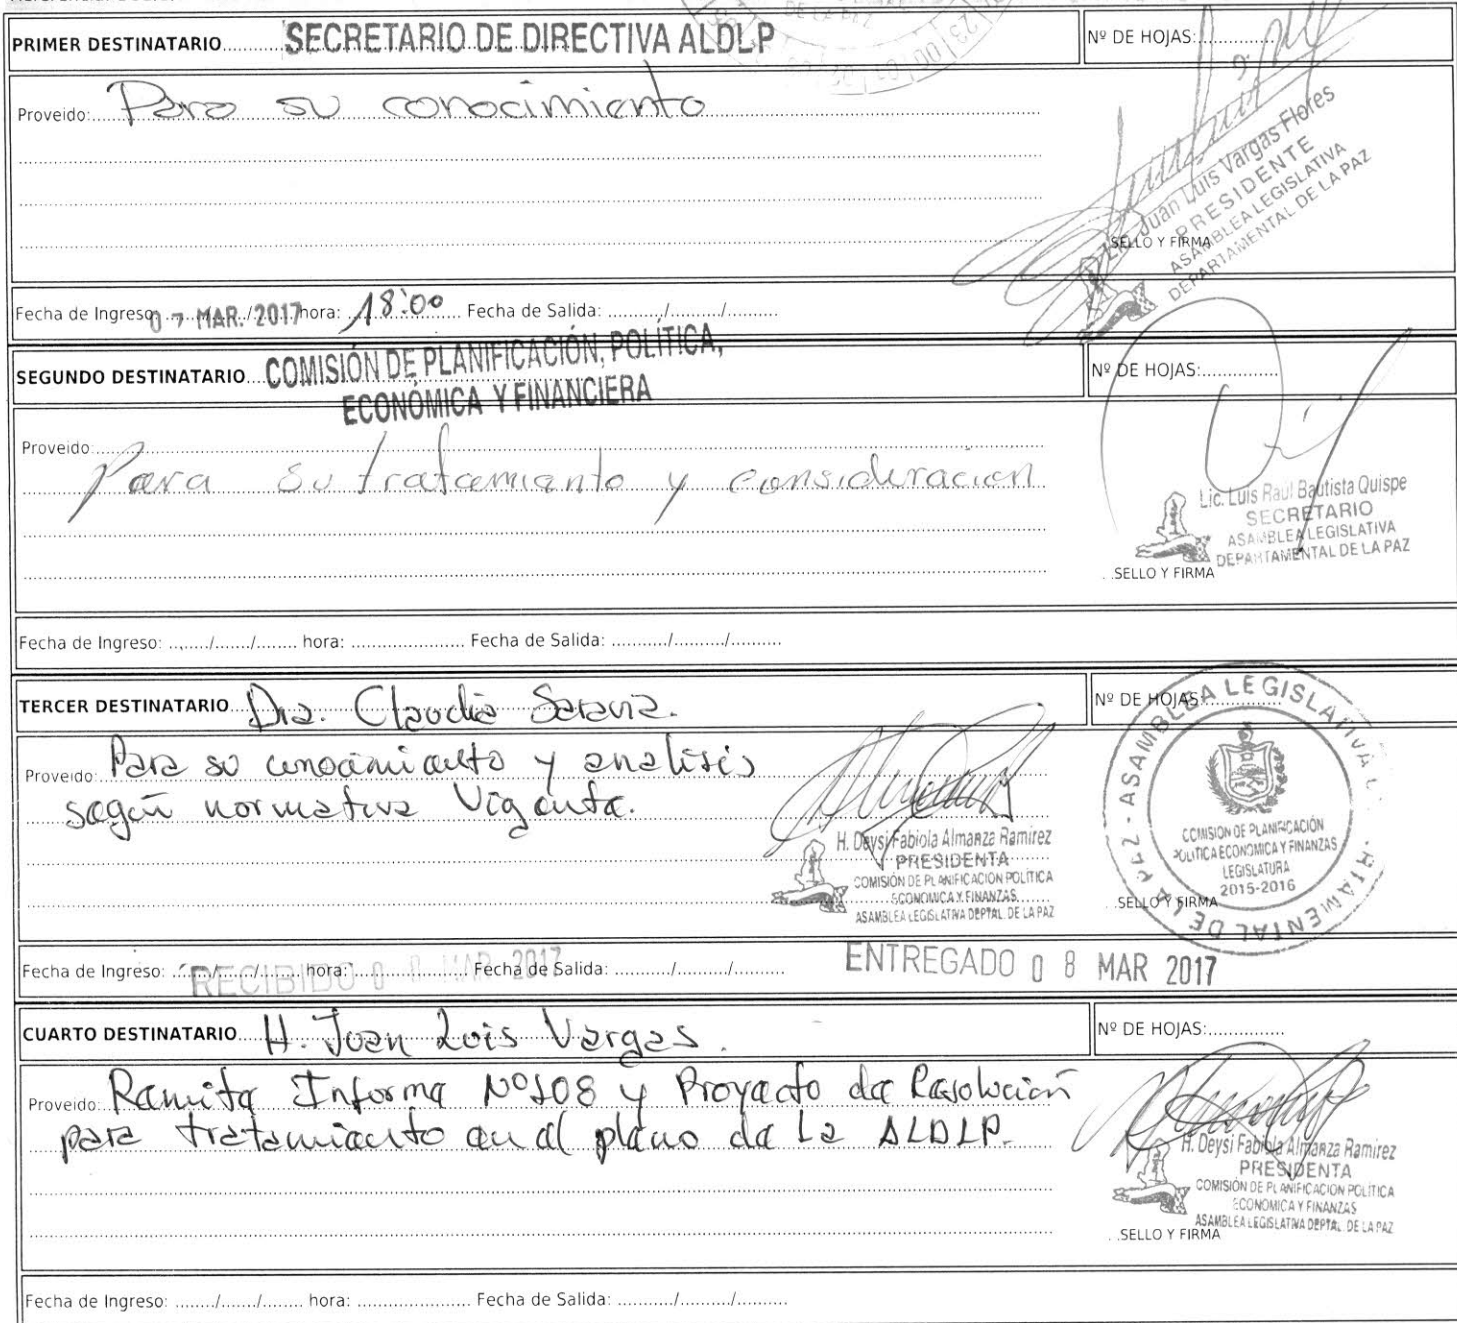 PRIMER DESTINATARIO SECRETARIO DE DIRECTIVA ALDLP
Nº DE HOJAS:
DE LA PAZ
Proveido: Para su conocimiento
Lic. Juan Luis Vargas Flores
PRESIDENTE
ASAMBLEA LEGISLATIVA
DEPARTAMENTAL DE LA PAZ
SELLO Y FIRMA
Fecha de Ingreso: 07 MAR. 2017 hora: 18:00 Fecha de Salida: ........../........../..........
SEGUNDO DESTINATARIO COMISIÓN DE PLANIFICACIÓN, POLÍTICA,
ECONÓMICA Y FINANCIERA
Nº DE HOJAS:
Proveido: Para su tratamiento y consideracion
Lic. Luis Raul Bautista Quispe
SECRETARIO
ASAMBLEA LEGISLATIVA
DEPARTAMENTAL DE LA PAZ
SELLO Y FIRMA
Fecha de Ingreso: ......./......./........ hora: ...................... Fecha de Salida: ........../........../..........
TERCER DESTINATARIO Dra. Claudia Saravia.
Nº DE HOJAS:
Proveido: Para su conocimiento y analisis
según normativa Vigente.
H. Deysi Fabiola Almanza Ramirez
PRESIDENTA
COMISIÓN DE PLANIFICACION POLÍTICA
ECONOMICA Y FINANZAS
ASAMBLEA LEGISLATIVA DEPTAL. DE LA PAZ
ASAMBLEA LEGISLATIVA DEPARTAMENTAL DE LA PAZ
COMISION DE PLANIFICACIÓN
POLITICA ECONOMICA Y FINANZAS
LEGISLATURA
2015-2016
SELLO Y FIRMA
Fecha de Ingreso: RECIBIDO MAR 2017 hora: Fecha de Salida: ........../........../.......... ENTREGADO 08 MAR 2017
CUARTO DESTINATARIO H. Juan Luis Vargas.
Nº DE HOJAS:
Proveido: Remito Informe Nº108 y Proyecto de Resolución
para tratamiento en el pleno de La ALDLP.
H. Deysi Fabiola Almanza Ramirez
PRESIDENTA
COMISIÓN DE PLANIFICACION POLÍTICA
ECONOMICA Y FINANZAS
ASAMBLEA LEGISLATIVA DEPTAL. DE LA PAZ
SELLO Y FIRMA
Fecha de Ingreso: ......../......./........ hora: ...................... Fecha de Salida: ........../........../..........